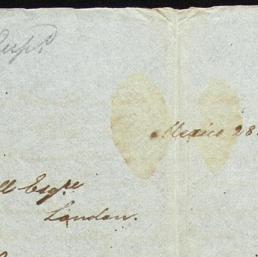 Mexico 28
ll Esqre
London.